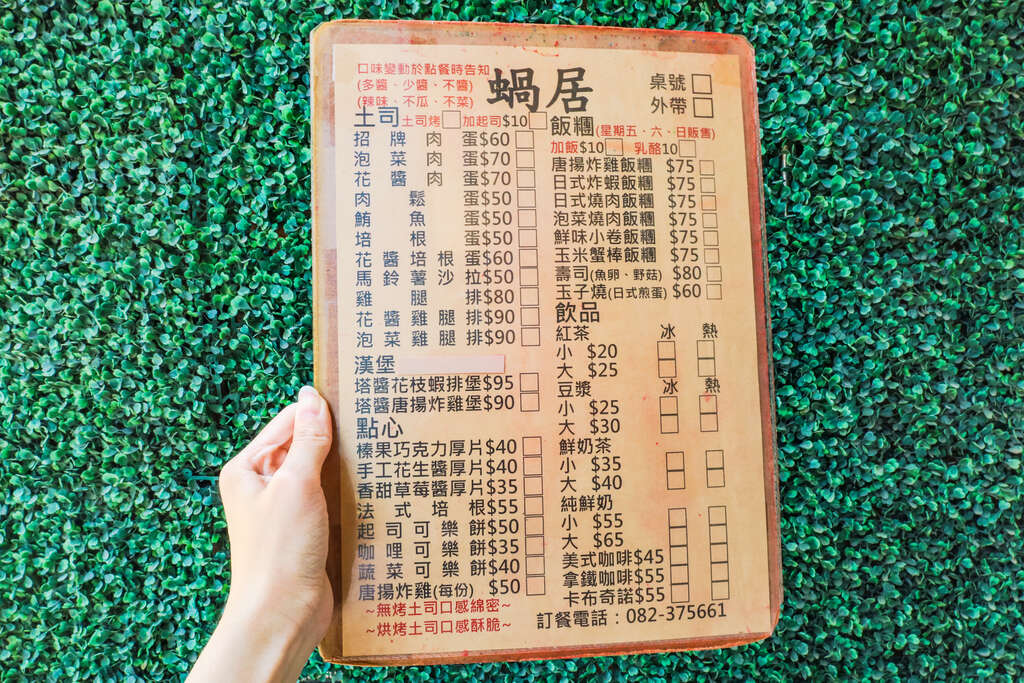 口味變動於點餐時告知
(多醬、少醬、不醬)
(辣味、不瓜、不菜)
蝸居
桌號
外帶
土司 土司烤 加起司$10
招牌肉蛋$60
泡菜肉蛋$70
花醬肉蛋$70
肉鬆蛋$50
鮪魚蛋$50
培根蛋$50
花醬培根蛋$60
馬鈴薯沙拉$50
雞腿排$80
花醬雞腿排$90
泡菜雞腿排$90
漢堡
塔醬花枝蝦排堡$95
塔醬唐揚炸雞堡$90
點心
榛果巧克力厚片$40
手工花生醬厚片$40
香甜草莓醬厚片$35
法式培根$55
起司可樂餅$50
咖哩可樂餅$35
蔬菜可樂餅$40
唐揚炸雞(每份) $50
~無烤土司口感綿密~
~烘烤土司口感酥脆~
飯糰(星期五、六、日販售)
加飯$10 乳酪10
唐揚炸雞飯糰 $75
日式炸蝦飯糰 $75
日式燒肉飯糰 $75
泡菜燒肉飯糰 $75
鮮味小卷飯糰 $75
玉米蟹棒飯糰 $75
壽司(魚卵、野菇) $80
玉子燒(日式煎蛋) $60
飲品
紅茶 冰 熱
小 $20
大 $25
豆漿 冰 熱
小 $25
大 $30
鮮奶茶
小 $35
大 $40
純鮮奶
小 $55
大 $65
美式咖啡$45
拿鐵咖啡$55
卡布奇諾$55
訂餐電話：082-375661